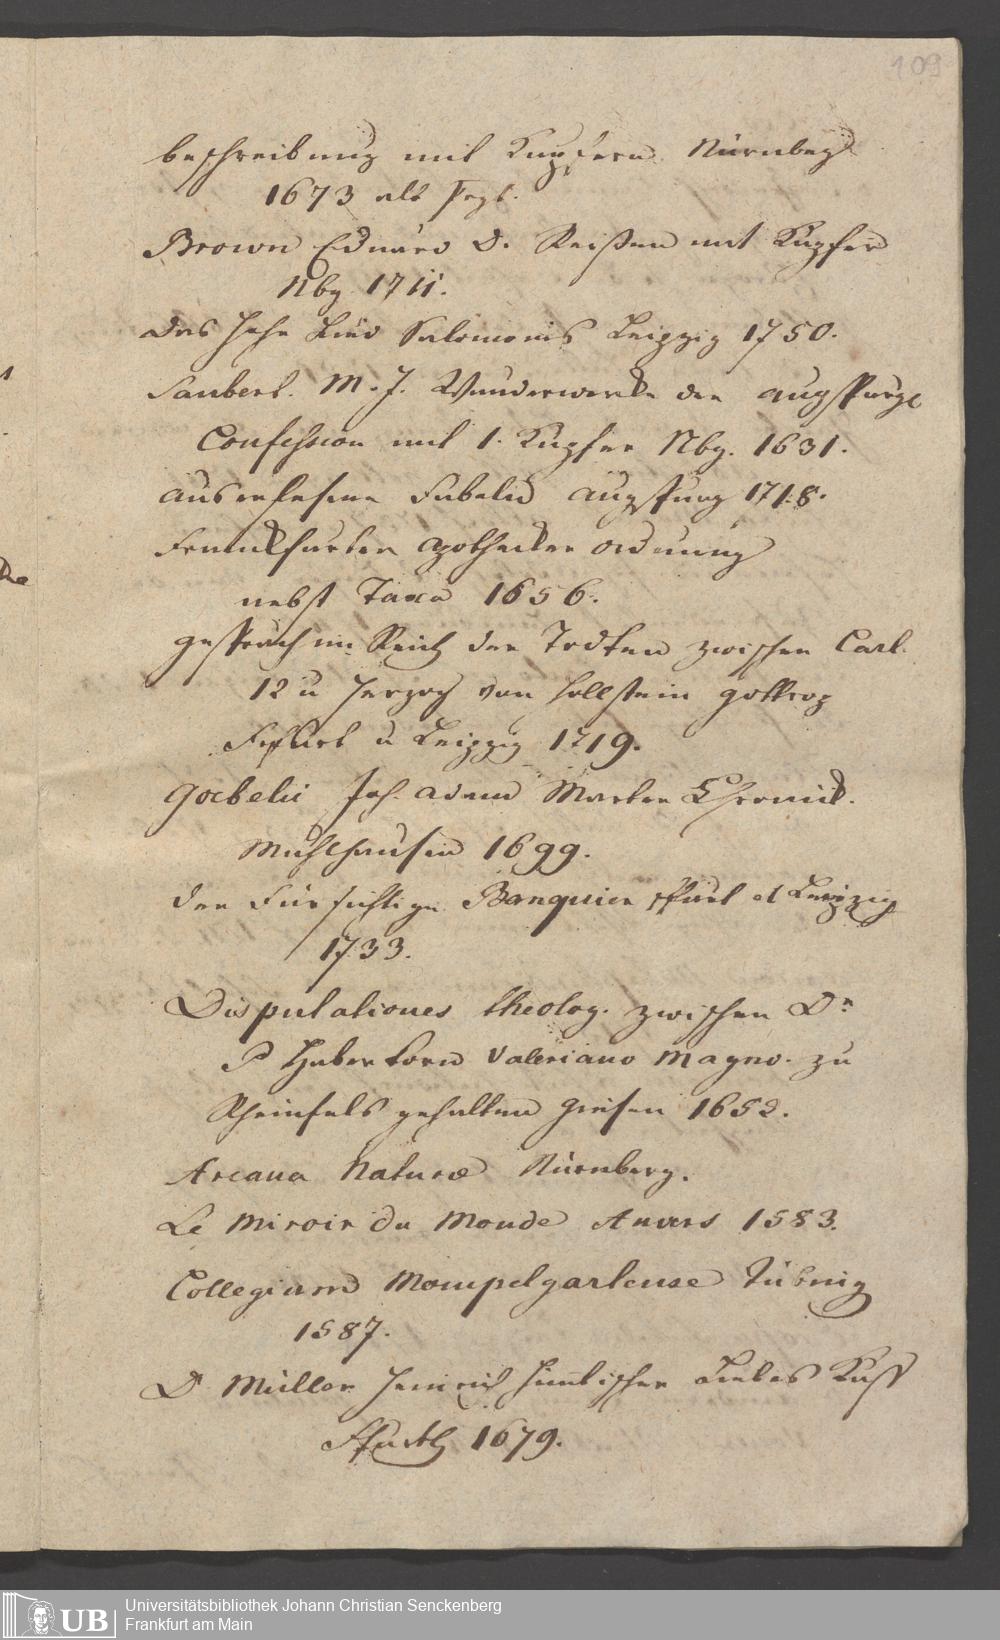 109
beschreibung mit Kupfern Nürnberg
1673 alb Perg.
Brown Eduard D. Reißen mit Kupfer
Nbg 1711.
das Hohe Lied Salomonis Leipzig 1750.
Saubert. M. J. Wunderwerke der augspurg
Confession mit 1. Kupfer Nbg. 1631.
auserlesene Fabeln augspurg 1718.
Franckfurter apothecker ordnung
nebst Taxa 1656.
gespräch im Reich der Todten zwischen Carl.
12 u Herzog von Hollstein gottrop
Frfurt u Leipzig 1719.
Goebelii Joh. adam Marter Chronick.
Muhlhausen 1699.
der Fürsichtige Banquier ffurt et Leipzig
1733.
Disputationes theolog. zwischen Dr
P Haberkorn Valeriano Magno. zu
Rheinfels gehalten Giesen 1652.
Arcana Naturæ Nürnberg.
Le Miroir du Monde Anvers 1583.
Collegium Mompelgartense Tübing
1587.
D Müller Heinrich himlischer Liebes Kuss
Ffurth 1679.
UB
Universitätsbibliothek Johann Christian Senckenberg
Frankfurt am Main